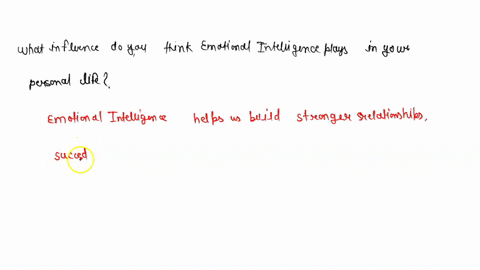 What influence do you think Emotional Intelligence plays in your
personal life?
Emotional Intelligence helps us build stronger relationships,
succed